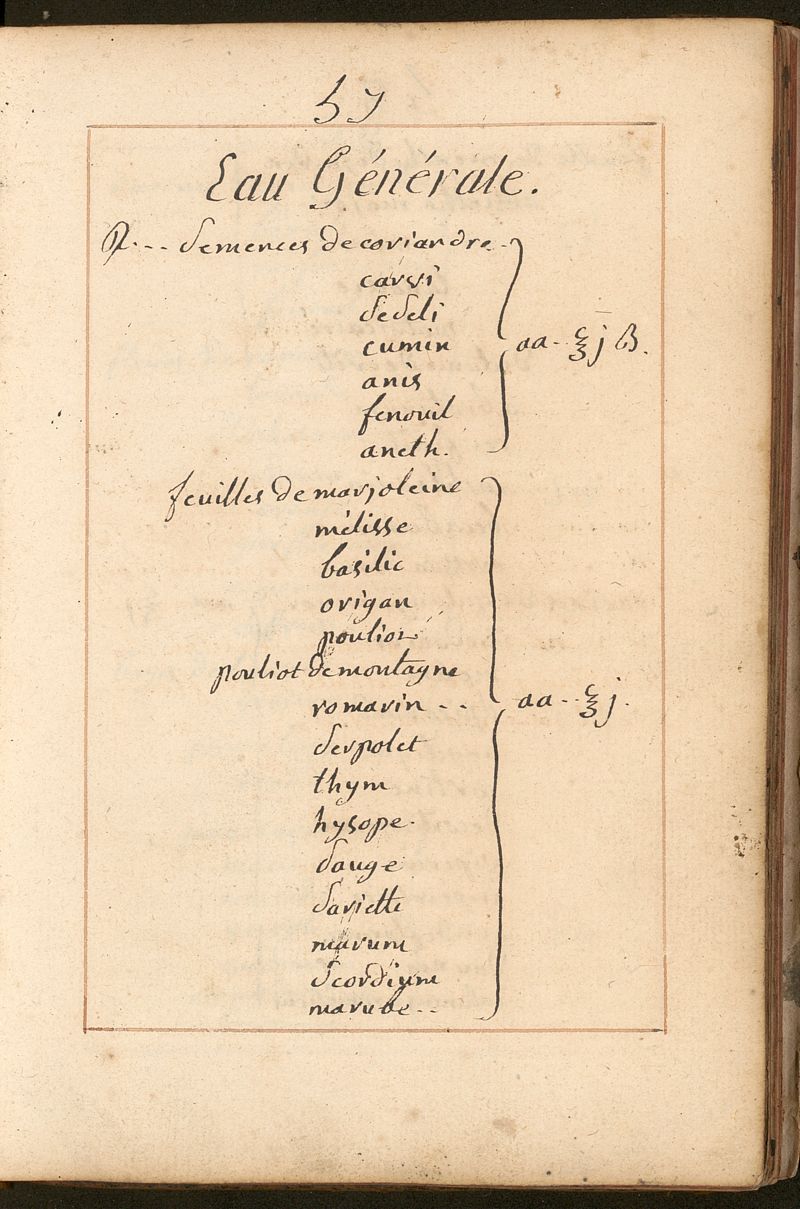 57
Eau Générale.
℞. -- Semences de coriandre
carvi
deseli
cumin
anis
fenouil
aneth.
aa -- ℥ j ß.
feuilles de marjoleine
mélisse
basilic
origan
pouliot
pouliot de montagne
romarin -- aa -- ℥ j.
serpolet
thym
hysope.
sauge
sariette
marum
scordium
marube --